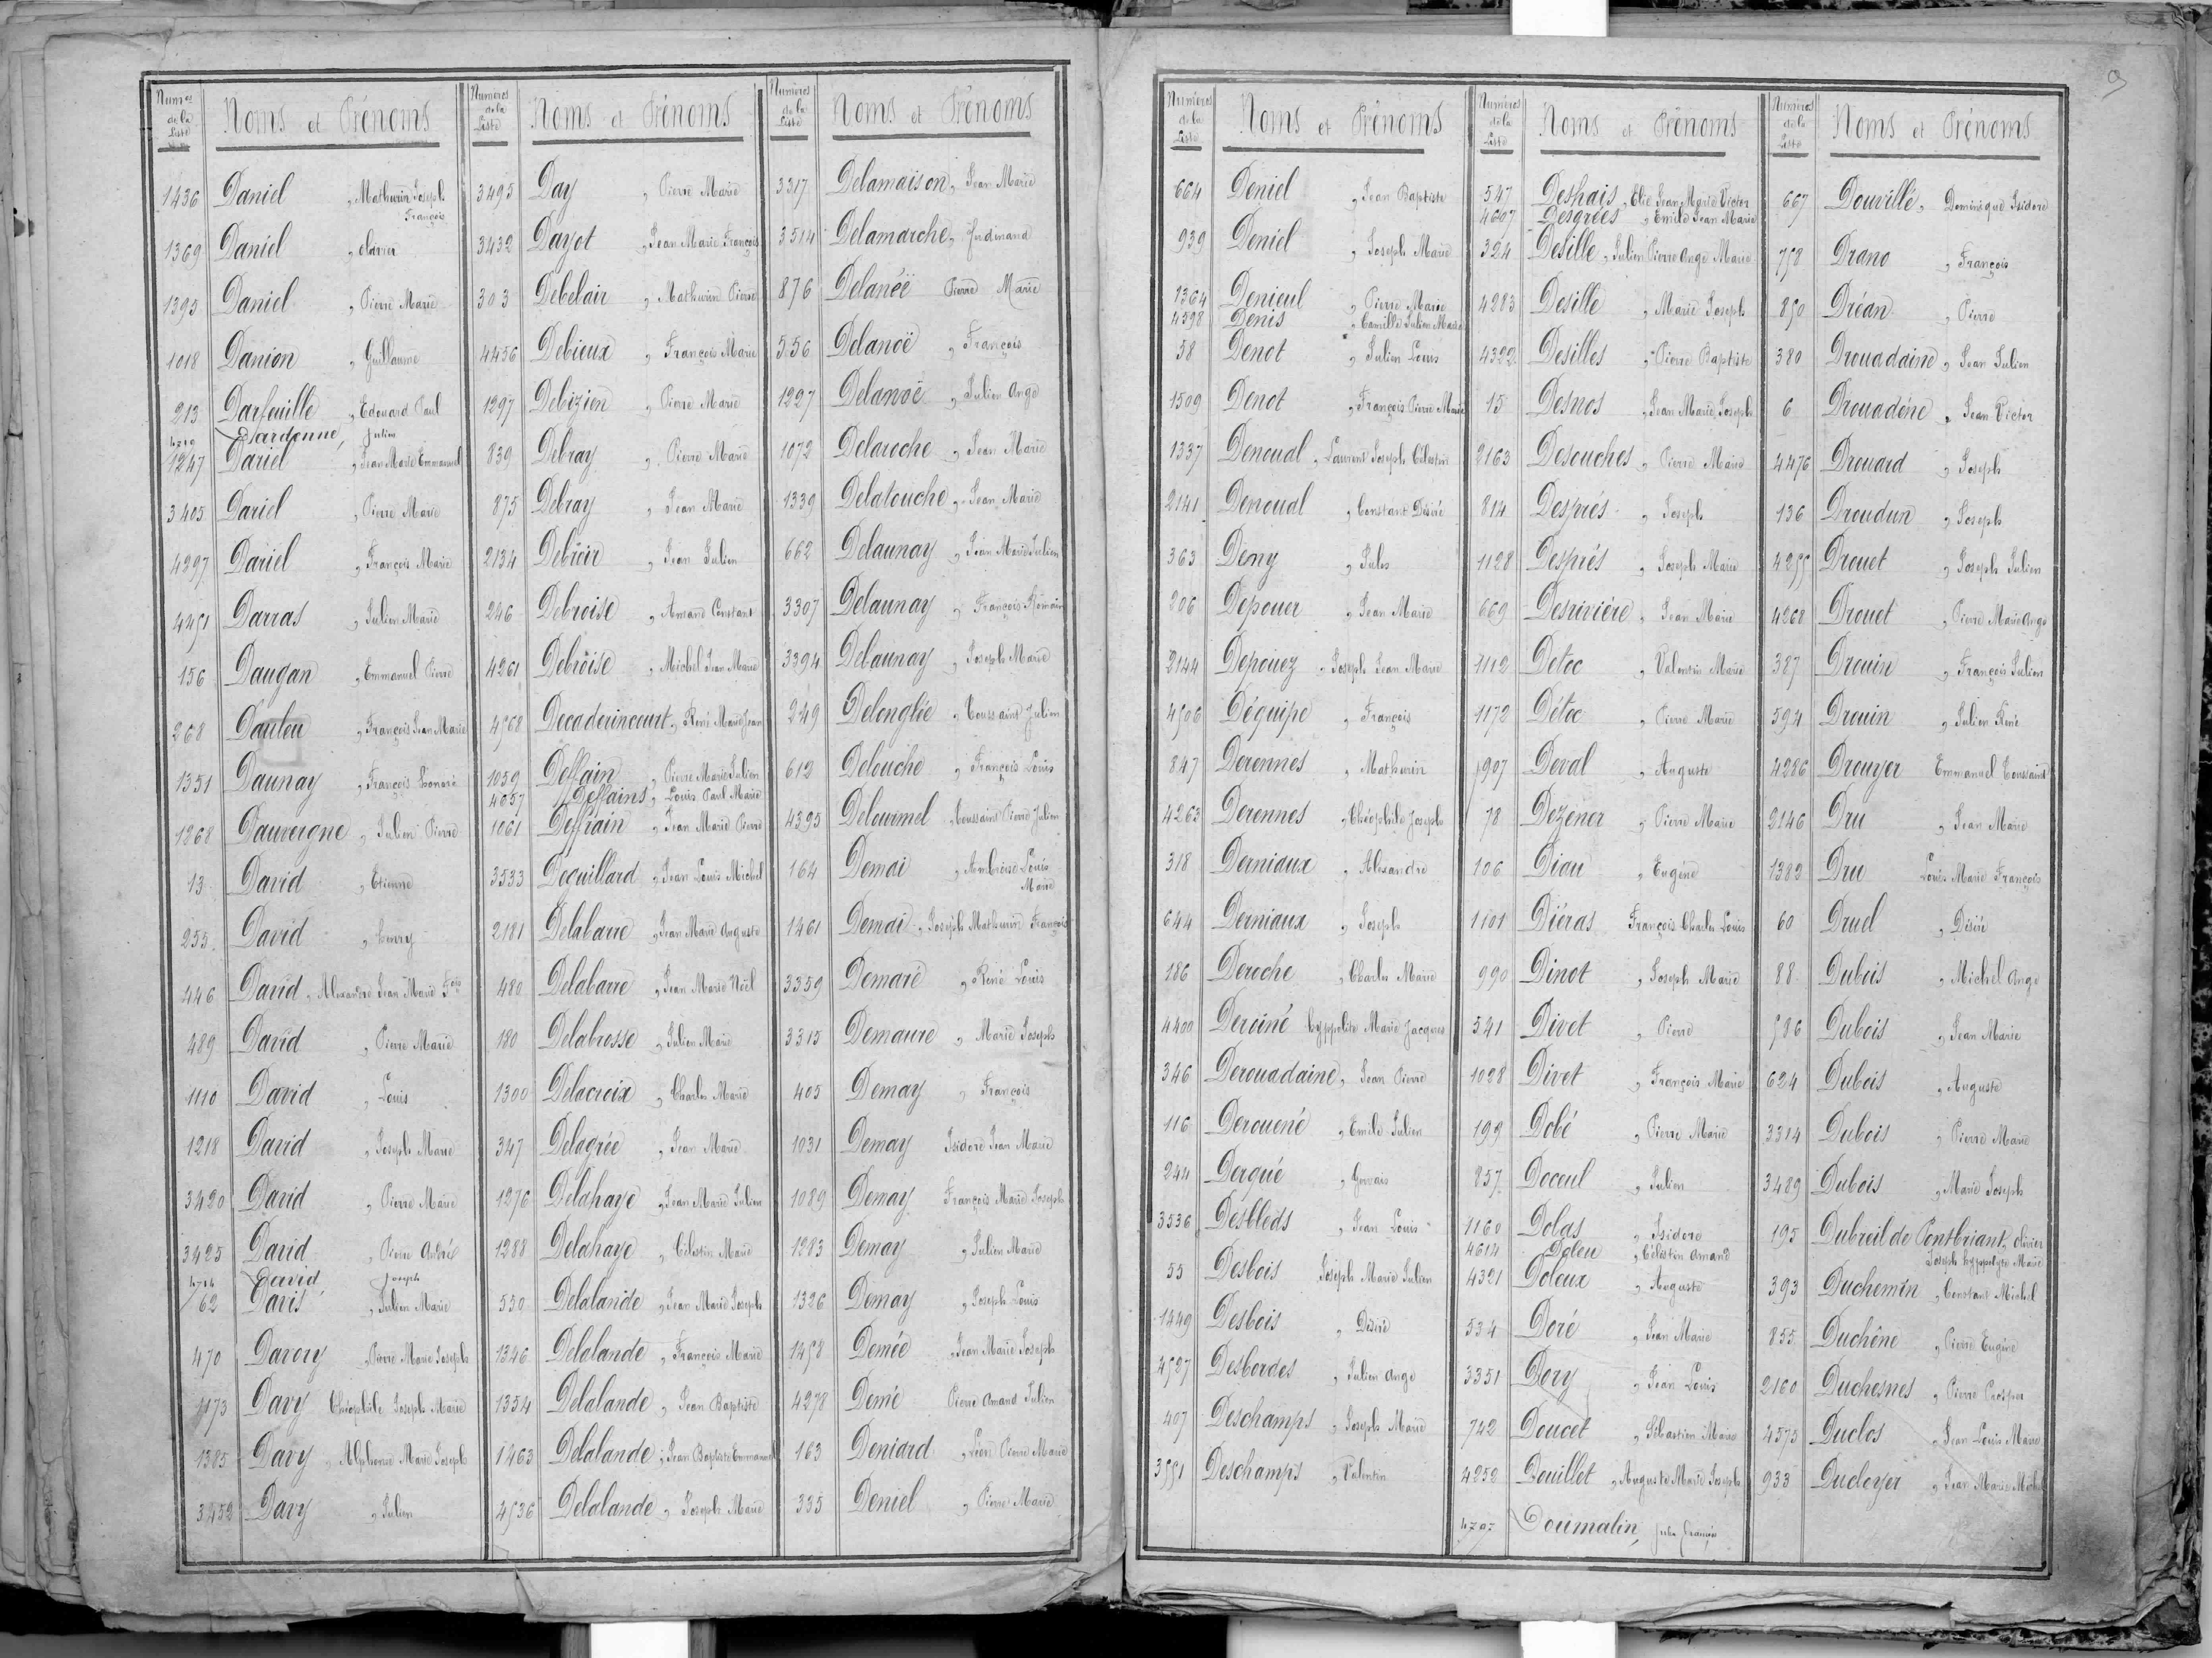 9
Num.os de la Liste Noms et Prénoms
1436 Daniel , Mathurin Joseph
François
1369 Daniel , olivier
1395 Daniel , Pierre Marie
1018 Danion , Guillaume
213 Darfeuille , Edouard Paul
Dardenne, Julien
1247 Dariel , Jean Marie Emmanuel
3405 Dariel , Pierre Marie
4297 Dariel , François Marie
4451 Darras , Julien Marie
156 Daugan , Emmanuel Pierre
268 Daulou , François Jean Marie
1351 Daunay , François honoré
1268 Dauvergne , Julien Pierre
13 David , Etienne
255 David , henry
446 David , Alexandre Jean Marie Fois
489 David , Pierre Marie
1110 David , Louis
1218 David , Joseph Marie
3420 David , Pierre Marie
3425 David , Pierre André
David Joseph
62 Davis , Julien Marie
470 Davory , Pierre Marie Joseph
1173 Davy Théophile Joseph Marie
1385 Davy , Alphonse Marie Joseph
3452 Davy , Julien
Numéros de la Liste Noms et Prénoms
3495 Day , Pierre Marie
3432 Dayot , Jean Marie François
303 Debelair , Mathurin Pierre
4456 Debieux , François Marie
1297 Debizien , Pierre Marie
839 Debray , Pierre Marie
875 Debray , Jean Marie
2134 Debroir , Jean Julien
246 Debroise , Armand Constant
4261 Debroise , Michel Jean Marie
4568 Decaderincourt , René Marie Jean
1059 Deffain , Pierre Marie Julien
4657 Deffains , Louis Paul Marie
1061 Deffrain , Jean Marie Pierre
3533 Deguillard , Jean Louis Michel
2181 Delabarre , Jean Marie Auguste
480 Delabarre , Jean Marie Noël
180 Delabrosse , Julien Marie
1300 Delacroix , Charles Marie
347 Delagrée , Jean Marie
1276 Delahaye , Jean Marie Julien
1288 Delahaye , Célestin Marie
550 Delalande , Jean Marie Joseph
1346 Delalande , François Marie
1354 Delalande , Jean Baptiste
1463 Delalande , Jean Baptiste Emmanuel
4536 Delalande , Joseph Marie
Numéros de la Liste Noms et Prénoms
3317 Delamaison , Jean Marie
3514 Delamarche , ferdinand
876 Delanëe Pierre Marie
556 Delanoë , François
1227 Delanoë , Julien Ange
1072 Delaroche , Jean Marie
1339 Delatouche , Jean Marie
662 Delaunay , Jean Marie Julien
3307 Delaunay , François Romain
3394 Delaunay , Joseph Marie
249 Delonglée , Toussaint Julien
612 Delouche , François Louis
4395 Delourmel , Toussaint Pierre Julien
164 Demai , Ambroise Louis
Marie
1461 Demai , Joseph Mathurin François
3359 Demaré , René Louis
3315 Demaure , Marie Joseph
405 Demay , François
1031 Demay Isidore Jean Marie
1089 Demay François Marie Joseph
1283 Demay , Julien Marie
1326 Demay , Joseph Louis
1458 Demée , Jean Marie Joseph
4278 Demé Pierre Amand Julien
163 Deniard , Léon Pierre Marie
335 Deniel , Pierre Marie
Numéros de la Liste Noms et Prénoms
664 Deniel , Jean Baptiste
939 Deniel , Joseph Marie
1364 Denieul , Pierre Marie
4598 Denis , Camille Julien Marie
58 Denot , Julien Louis
1509 Denot , François Pierre Marie
1337 Denoual , Laurent Joseph Célestin
2141 Denoual , Constant Désiré
363 Deny , Jules
206 Depouer , Jean Marie
2144 Depouez , Joseph Jean Marie
4506 Déquipe , François
847 Derennes , Mathurin
4263 Derennes , Théophile Joseph
318 Derniaux , Alexandre
644 Derniaux , Joseph
186 Deroche , Charles Marie
4400 Deroiné hyppolite Marie Jacques
346 Derouadaine , Jean Pierre
116 Derouené , Emile Julien
244 Derqué , Gervais
3536 Desbleds , Jean Louis
55 Desbois Joseph Marie Julien
1449 Desbois , Désiré
4527 Desbordes , Julien Ange
407 Deschamps , Joseph Marie
3551 Deschamps , Valentin
Numéros de la Liste Noms et Prénoms
547 Deshais , Elie Jean Marie Victor
4607 Desgrées , Emile Jean Marie
324 Desille , Julien Pierre Ange Marie
4283 Desille , Marie Joseph
4322 Desilles , Pierre Baptiste
15 Desnos , Jean Marie Joseph
2163 Desouches , Pierre Marie
814 Després , Joseph
1128 Després , Joseph Marie
669 Desrivière , Jean Marie
1112 Detoc , Valentin Marie
1172 Détoc , Pierre Marie
907 Deval , Auguste
78 Dezener , Pierre Marie
106 Diau , Eugène
1101 Diéras François Charles Louis
990 Dinot , Joseph Marie
541 Divet , Pierre
1028 Divet , François Marie
199 Dobé , Pierre Marie
857 Doceul , Julien
1160 Dolas , Isidore
4614 Doleu , Célestin Amand
4321 Doleux , Auguste
534 Doré , Jean Marie
3351 Dory , Jean Louis
742 Doucet , Sébastien Marie
4252 Douillet , Auguste Marie Joseph
4707 Doumalin, François
Numéros de la Liste Noms et Prénoms
667 Douville , Dominique Isidore
758 Drano , François
850 Dréan , Pierre
380 Drouadaine , Jean Julien
6 Drouadéne , Jean Victor
4476 Drouard , Joseph
136 Droudun , Joseph
4255 Drouet , Joseph Julien
4268 Drouet , Pierre Marie Ange
387 Drouin , François Julien
594 Drouin , Julien René
4286 Drouyer Emmanuel Toussaint
2146 Dru , Jean Marie
1382 Dru Louis Marie François
60 Druel , Désiré
88 Dubois , Michel Ange
586 Dubois , Jean Marie
624 Dubois , Auguste
3314 Dubois , Pierre Marie
3489 Dubois , Marie Joseph
195 Dubreil de Pontbriant , olivier
Joseph hyppolyte Marie
393 Duchemin , Constant Michel
855 Duchêne , Pierre Eugène
2160 Duchesnes , Pierre Prosper
4575 Duclos , Jean Louis Marie
933 Ducloyer , Jean Marie Michel